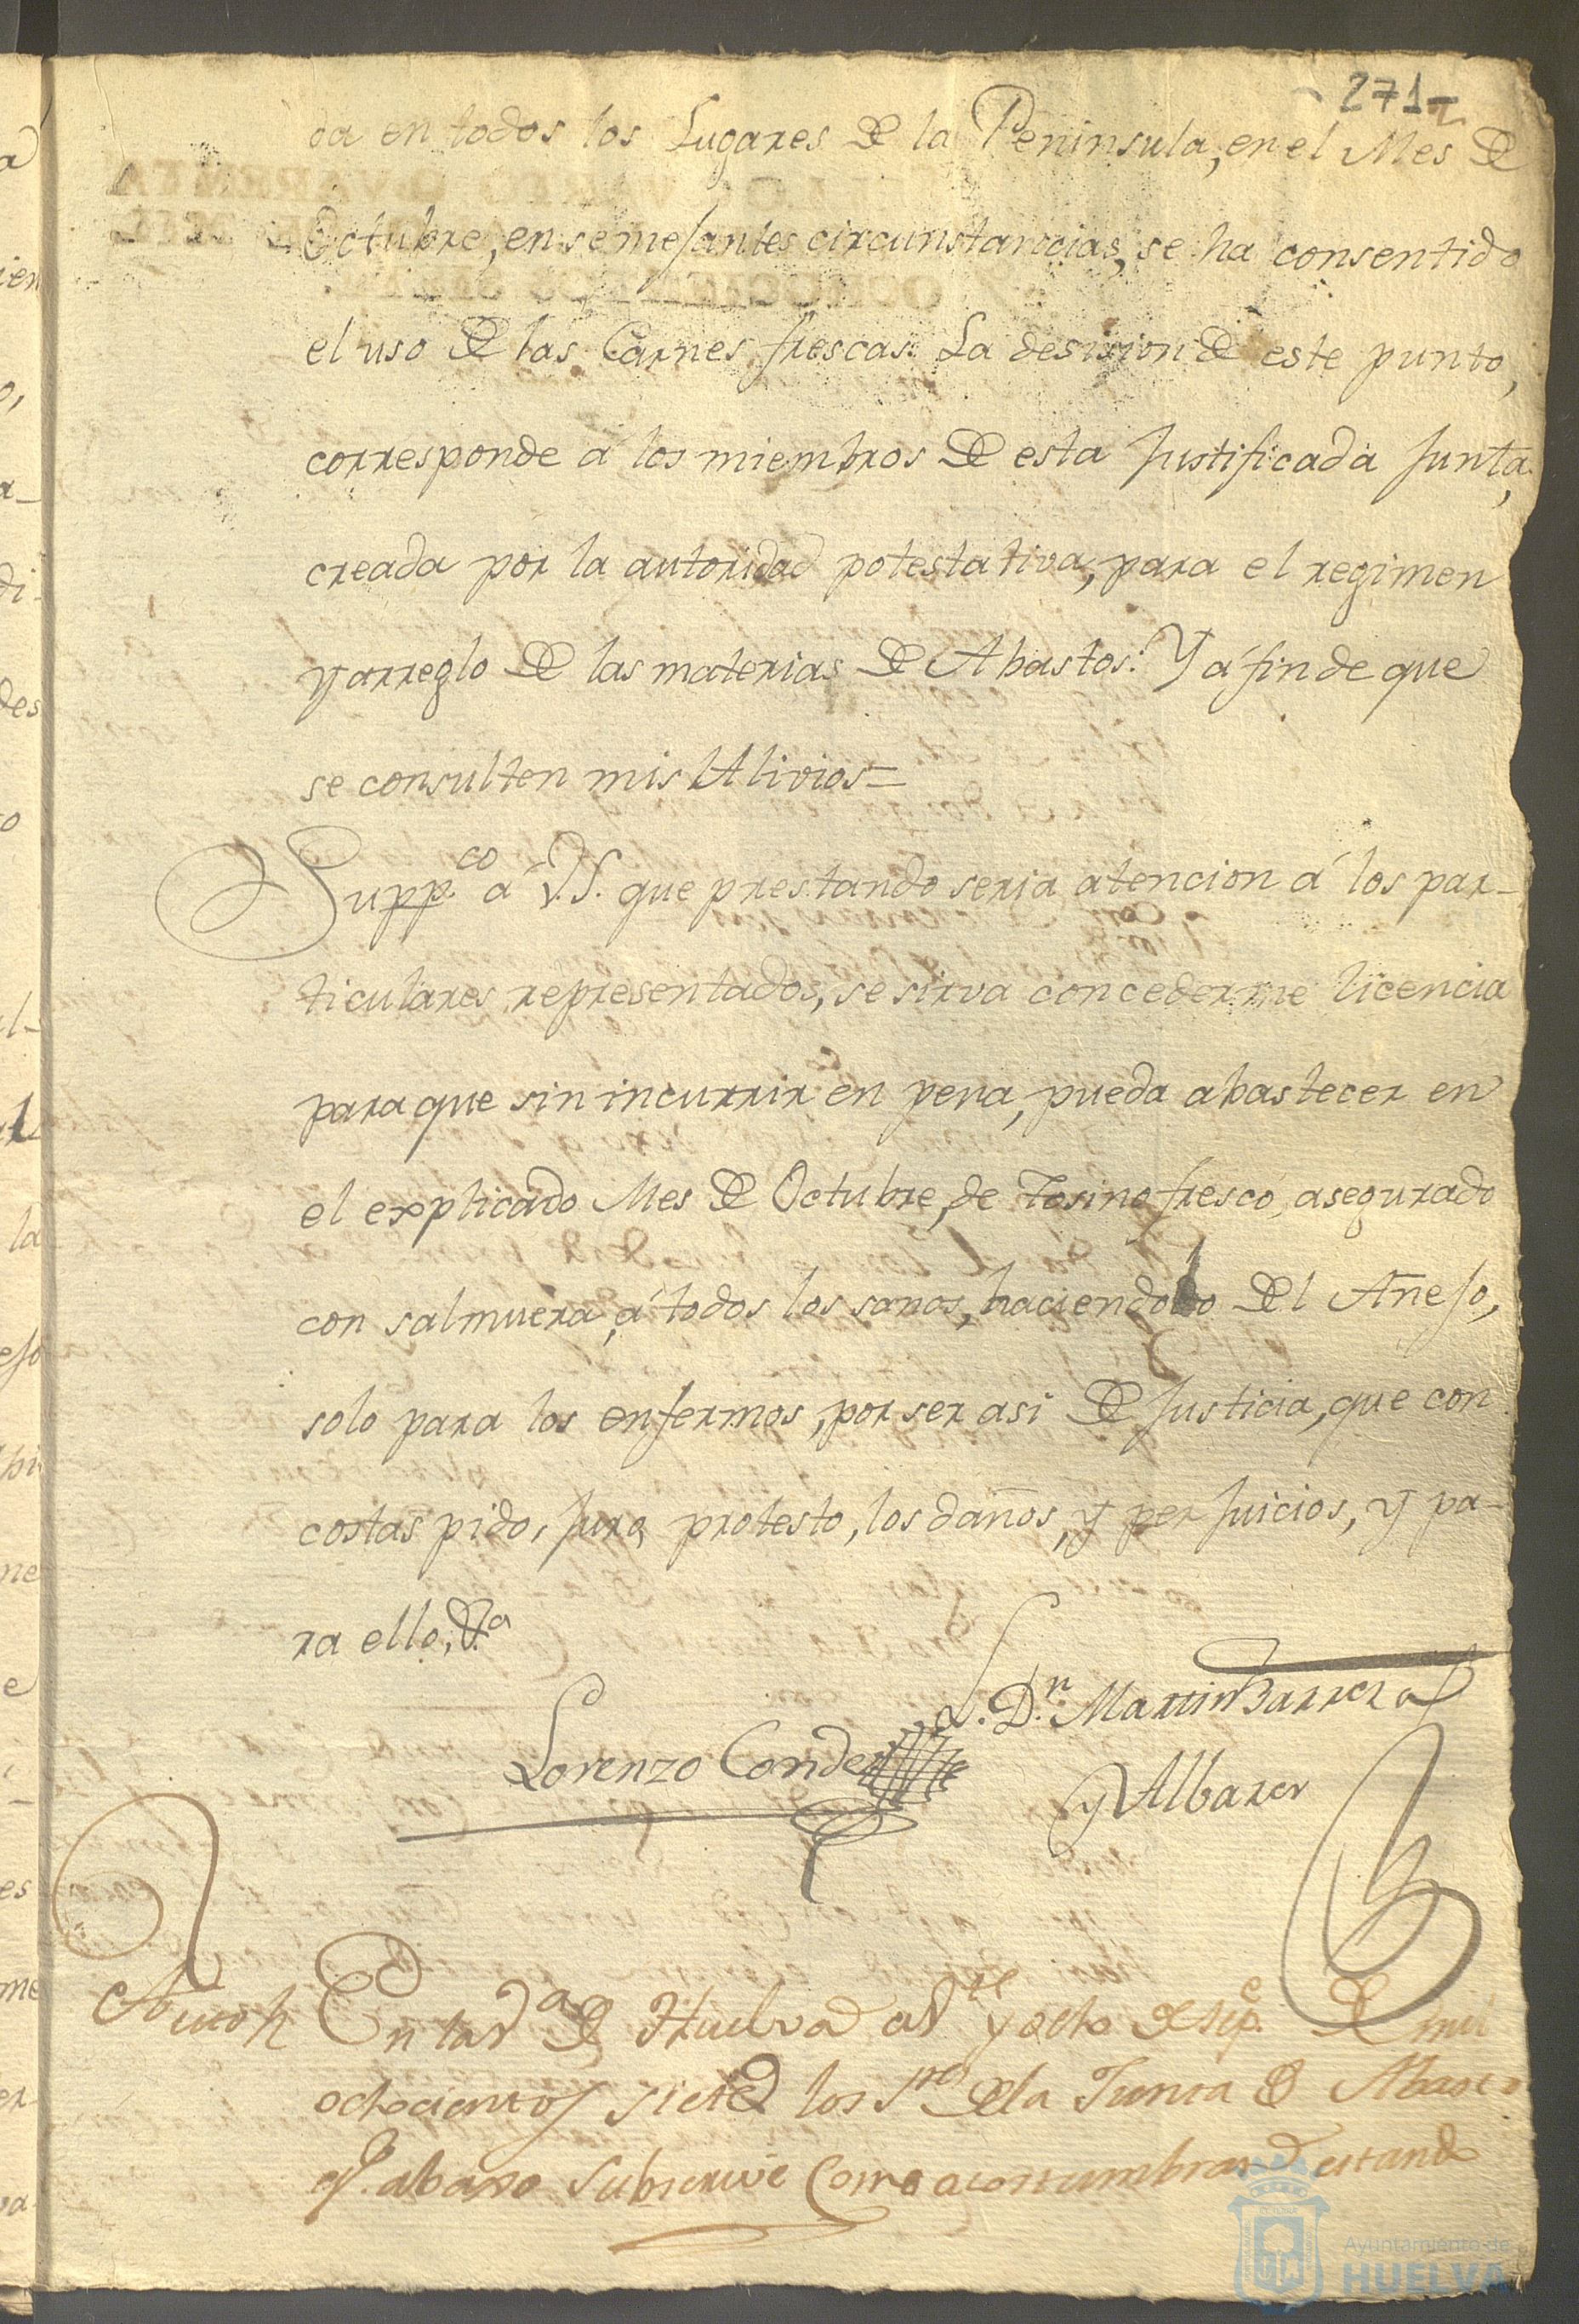 271
da en todos los Lugares de la Peninsula, en el Mes de
Octubre, en semejantes circunstancias, se ha consentido
el uso de las Carnes frescas. La desision de este punto,
corresponde á los miembros de esta Justificada Junta,
creada por la autoridad potestativa, para el regimen
y arreglo de las materias de Abastos: Y á fin de que
se consulten mis Alivios=
Supp.co á V.S. que prestando seria atencion á los par-
ticulares representados, se sirva concederme licencia
para que sin incurrir en pena, pueda abastecer en
el explicado Mes de Octubre, de Tosino fresco, asegurado
con salmuera, á todos los sanos, haciendolo del Añejo,
solo para los enfermos, por ser asi de Justicia, que con
costas pido, juro, protesto, los daños, y perjuicios, y pa-
ra ello, &.a
L. D.n Martin Barrera
Lorenzo Conde
y Albares
Auto En la V.a de Huelva a V.te y ocho de sep.e de mil
ochocientos siete los S.res de la Junta de Abastos
q.e abaxo subscrive como acostumbran estando
Ayuntamiento de
HUELVA